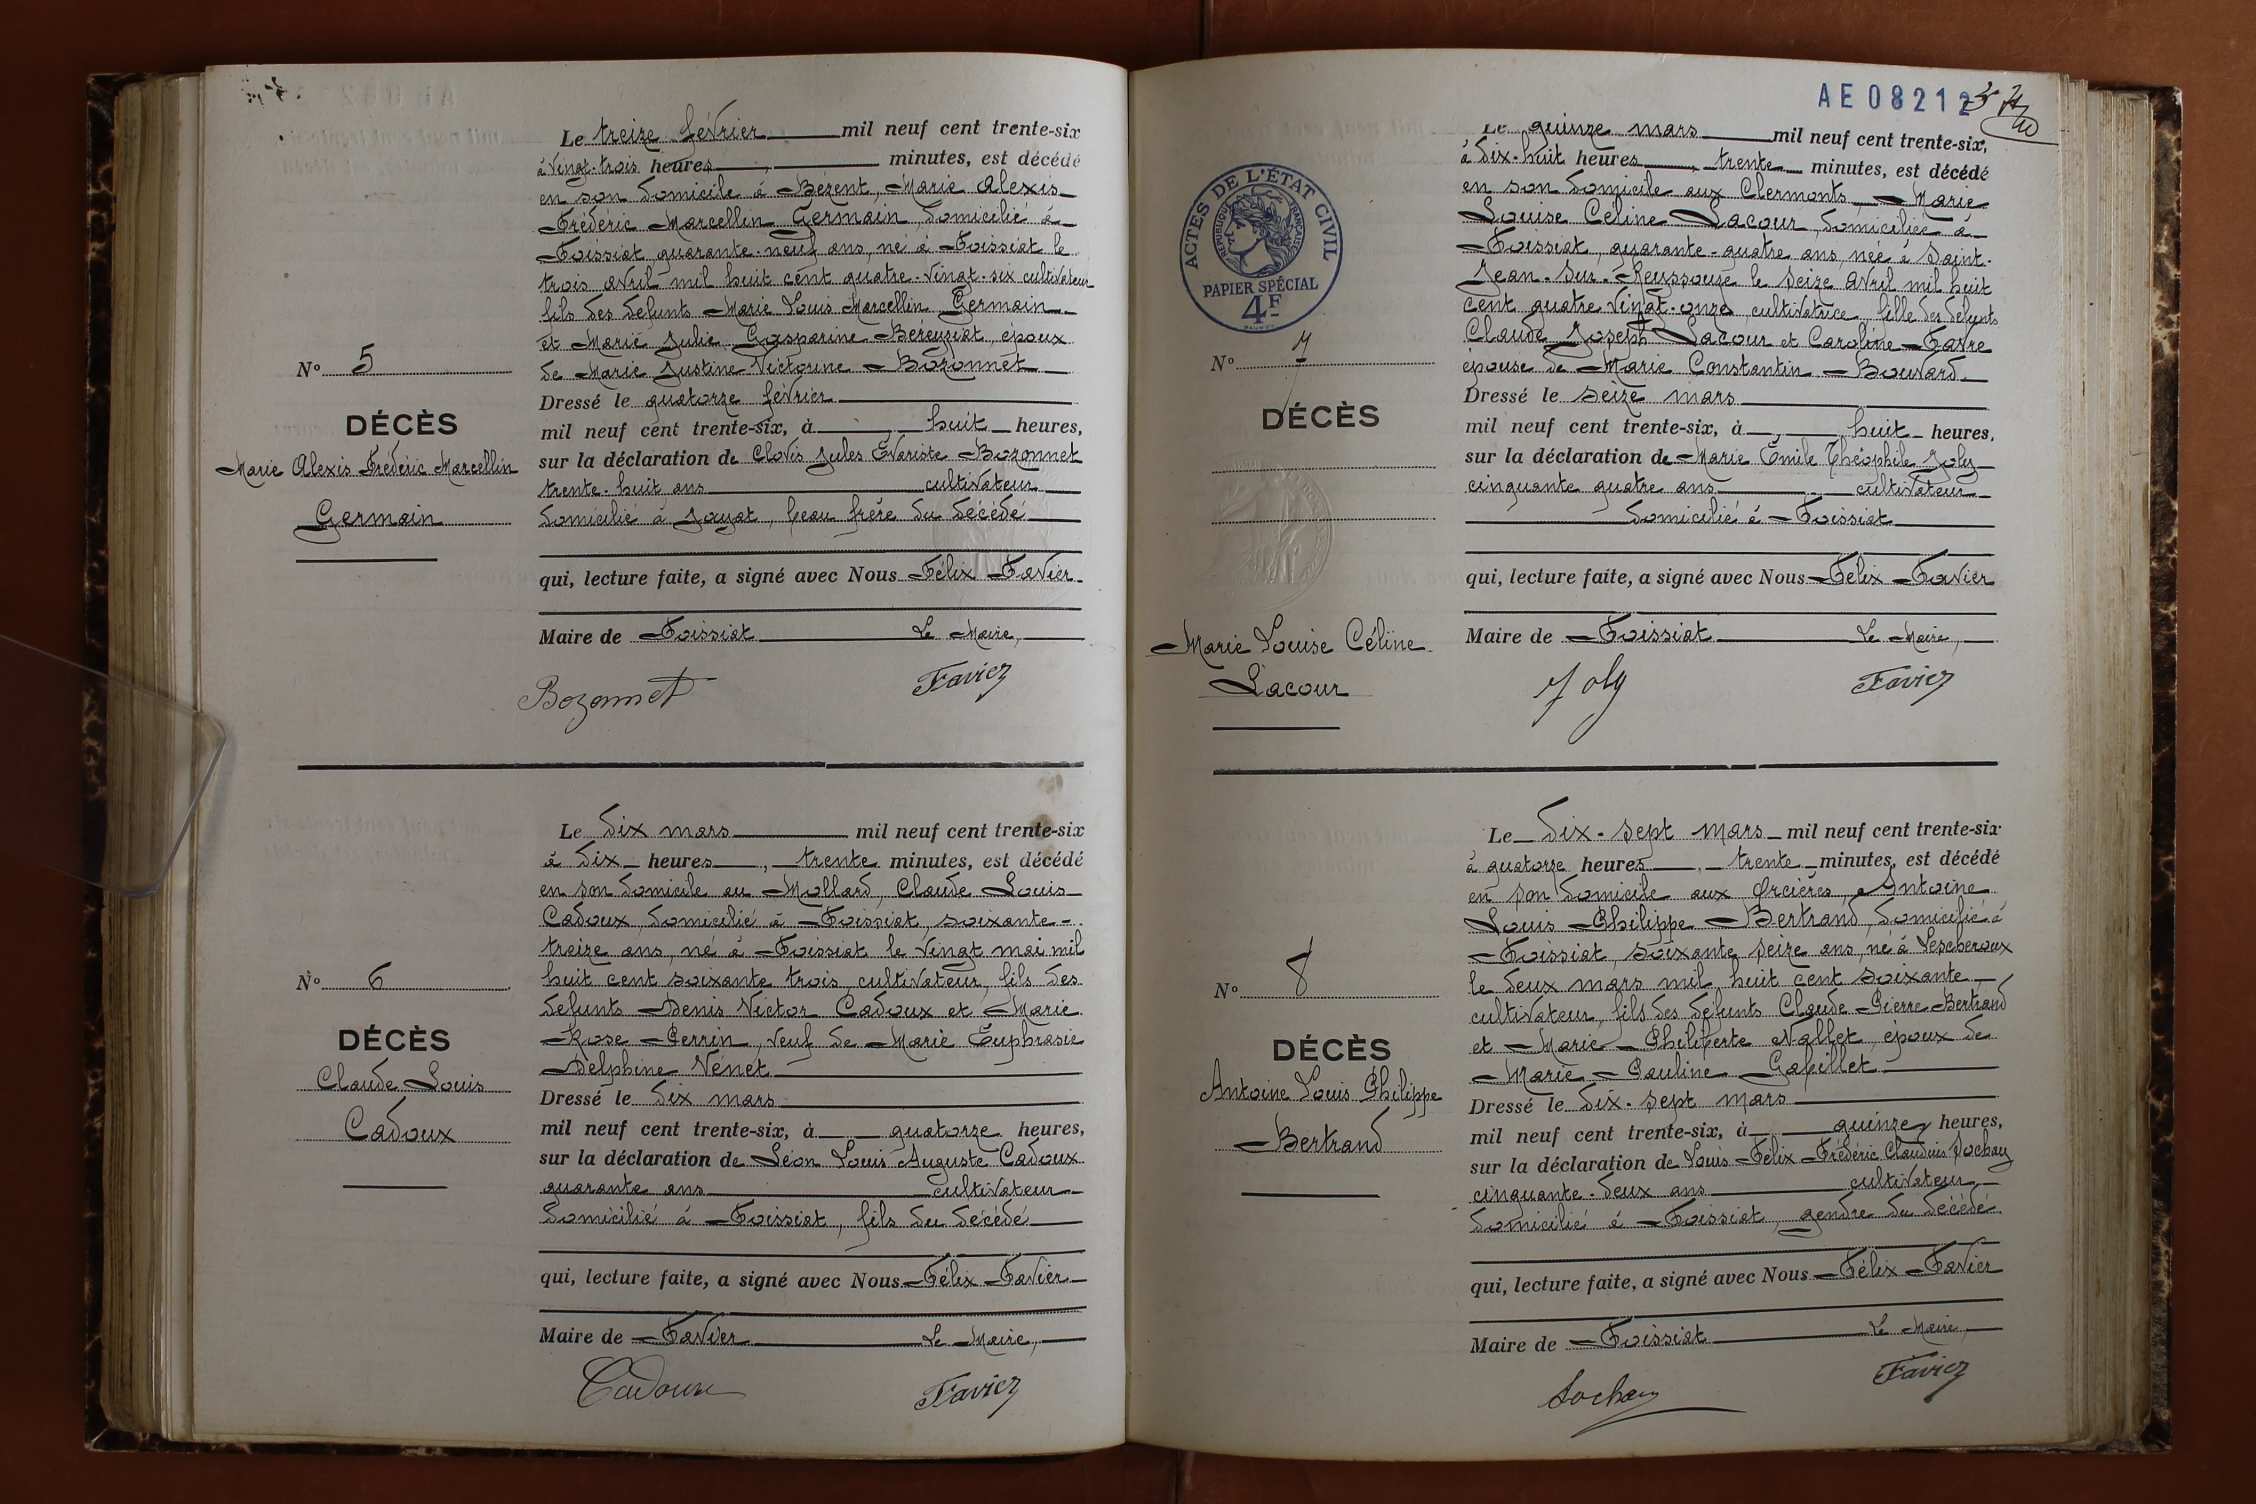 Le treize février mil neuf cent trente-six
à vingt-trois heures, minutes, est décédé
en son domicile à Bézent, Marie Alexis
Frédéric Marcellin Germain, domicilié à
Foissiat, quarante-neuf ans, né à Foissiat le
trois avril mil huit cent quatre-vingt-six cultivateur
fils des defunts Marie Louis Marcellin Germain
et Marie Julie Gasparine Béreyziat, époux
de Marie Justine Victorine Bozonnet
Dressé le quatorze février
mil neuf cent trente-six, à huit heures,
sur la déclaration de Clovis Jules Évariste Bozonnet
trente-huit ans cultivateur
domicilié à Jayat, beau frère du décédé
qui, lecture faite, a signé avec Nous Félix Favier
Maire de Foissiat Le Maire,
Bozonnet Favier
N° 5
DÉCÈS
Marie Alexis Frédéric Marcellin
Germain
Le dix mars mil neuf cent trente-six
à dix heures, trente minutes, est décédé
en son domicile au Mollard, Claude Louis
Cadoux, domicilié à Foissiat, soixante-
treize ans, né à Foissiat le vingt mai mil
huit cent soixante trois, cultivateur, fils des
defunts Denis Victor Cadoux et Marie
Rose Perrin, veuf de Marie Euphrasie
Delphine Vénet
Dressé le dix mars
mil neuf cent trente-six, à quatorze heures,
sur la déclaration de Léon Louis Auguste Cadoux
quarante ans cultivateur
domicilié à Foissiat, fils du décédé
qui, lecture faite, a signé avec Nous Félix Favier
Maire de Favier Le Maire,
Cadoux Favier
N° 6
DÉCÈS
Claude Louis
Cadoux
AE 08212
ACTES DE L'ÉTAT CIVIL
RÉPUBLIQUE FRANÇAISE
PAPIER SPÉCIAL
4F
Le quinze mars mil neuf cent trente-six,
à dix-huit heures, trente minutes, est décédé
en son domicile aux Clermonts, Marie
Louise Céline Lacour, domiciliée à
Foissiat, quarante-quatre ans, née à Saint-
Jean-sur-Reyssouze le seize avril mil huit
cent quatre vingt-onze, cultivatrice, fille des defunts
Claude Joseph Lacour et Caroline Favre
épouse de Marie Constantin Bouvard
Dressé le seize mars
mil neuf cent trente-six, à, huit heures,
sur la déclaration de Marie Émile Théophile Joly
cinquante quatre ans cultivateur
domicilié à Foissiat
qui, lecture faite, a signé avec Nous Félix Favier
Maire de Foissiat Le Maire,
Joly Favier
N° 7
DÉCÈS
Marie Louise Céline
Lacour
Le dix-sept mars mil neuf cent trente-six
à quatorze heures, trente minutes, est décédé
en son domicile aux Orcières, Antoine
Louis Philippe Bertrand, domicilié à
Foissiat, soixante seize ans, né à Lescheroux
le deux mars mil huit cent soixante
cultivateur, fils des défunts Claude Pierre Bertrand
et Marie Philiberte Nallet, époux de
Marie Pauline Gabillet
Dressé le dix-sept mars
mil neuf cent trente-six, à quinze heures,
sur la déclaration de Louis Félix Frédéric Claudius Sochay
cinquante-deux ans cultivateur
domicilié à Foissiat, gendre du décédé
qui, lecture faite, a signé avec Nous Félix Favier
Maire de Foissiat Le Maire,
Sochay Favier
N° 8
DÉCÈS
Antoine Louis Philippe
Bertrand